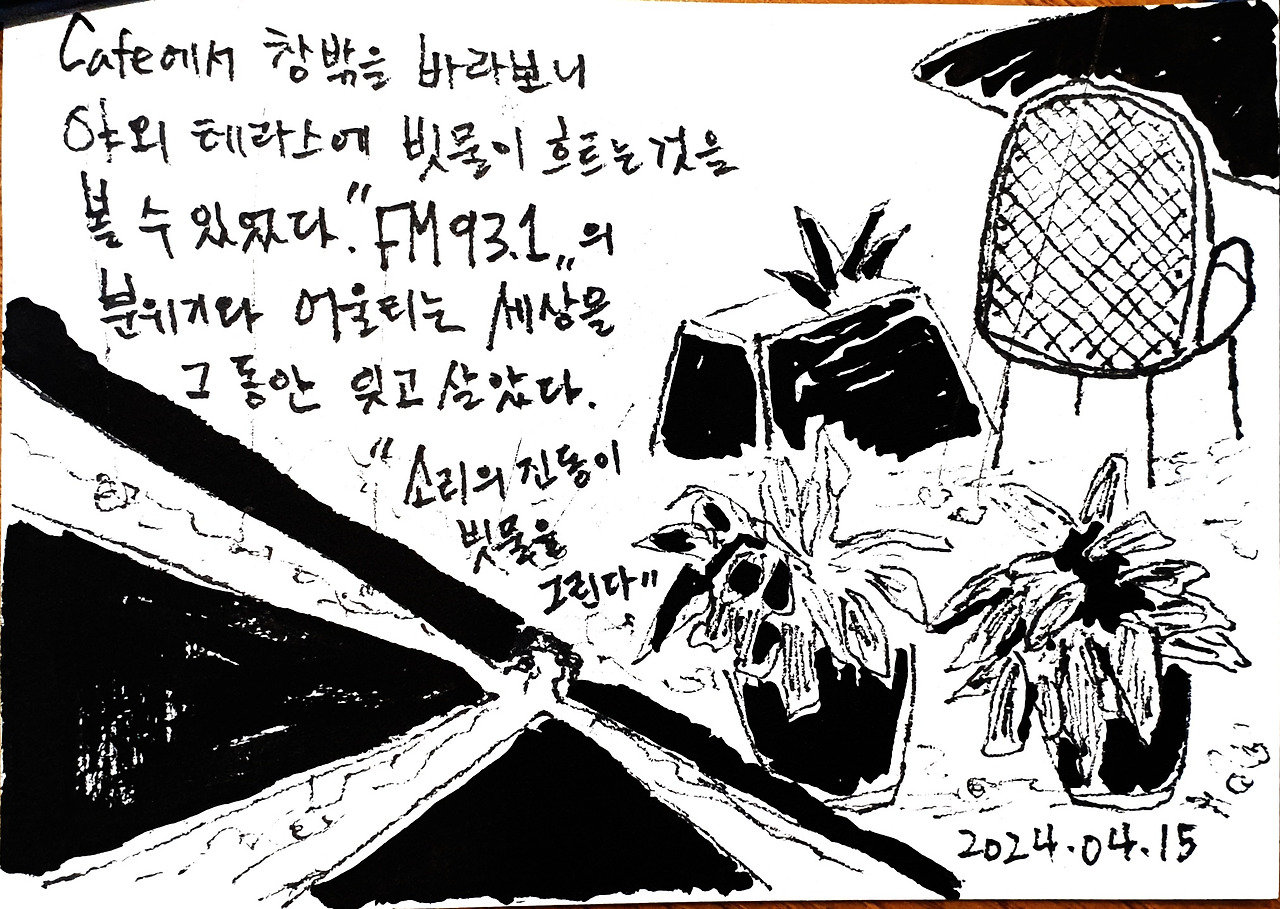 Cafe에서 창밖을 바라보니
야외 테라스에 빗물이 흐트는것을
볼 수 있었다. "FM 93.1"의
분위기와 어울리는 세상을
그동안 잊고 살았다.
"소리의 진동이
빗물을
그린다"
2024.04.15